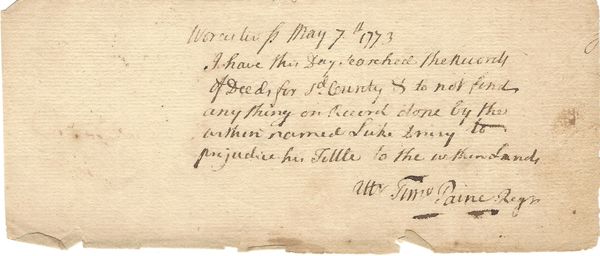 Worcester ss May 7th 1773
I have this Day searched the Records
of Deeds for sd County & do not find
any thing on Record done by the
within named Luke Drury to
prejudice his Tittle to the within Lands
Timo Paine Regr